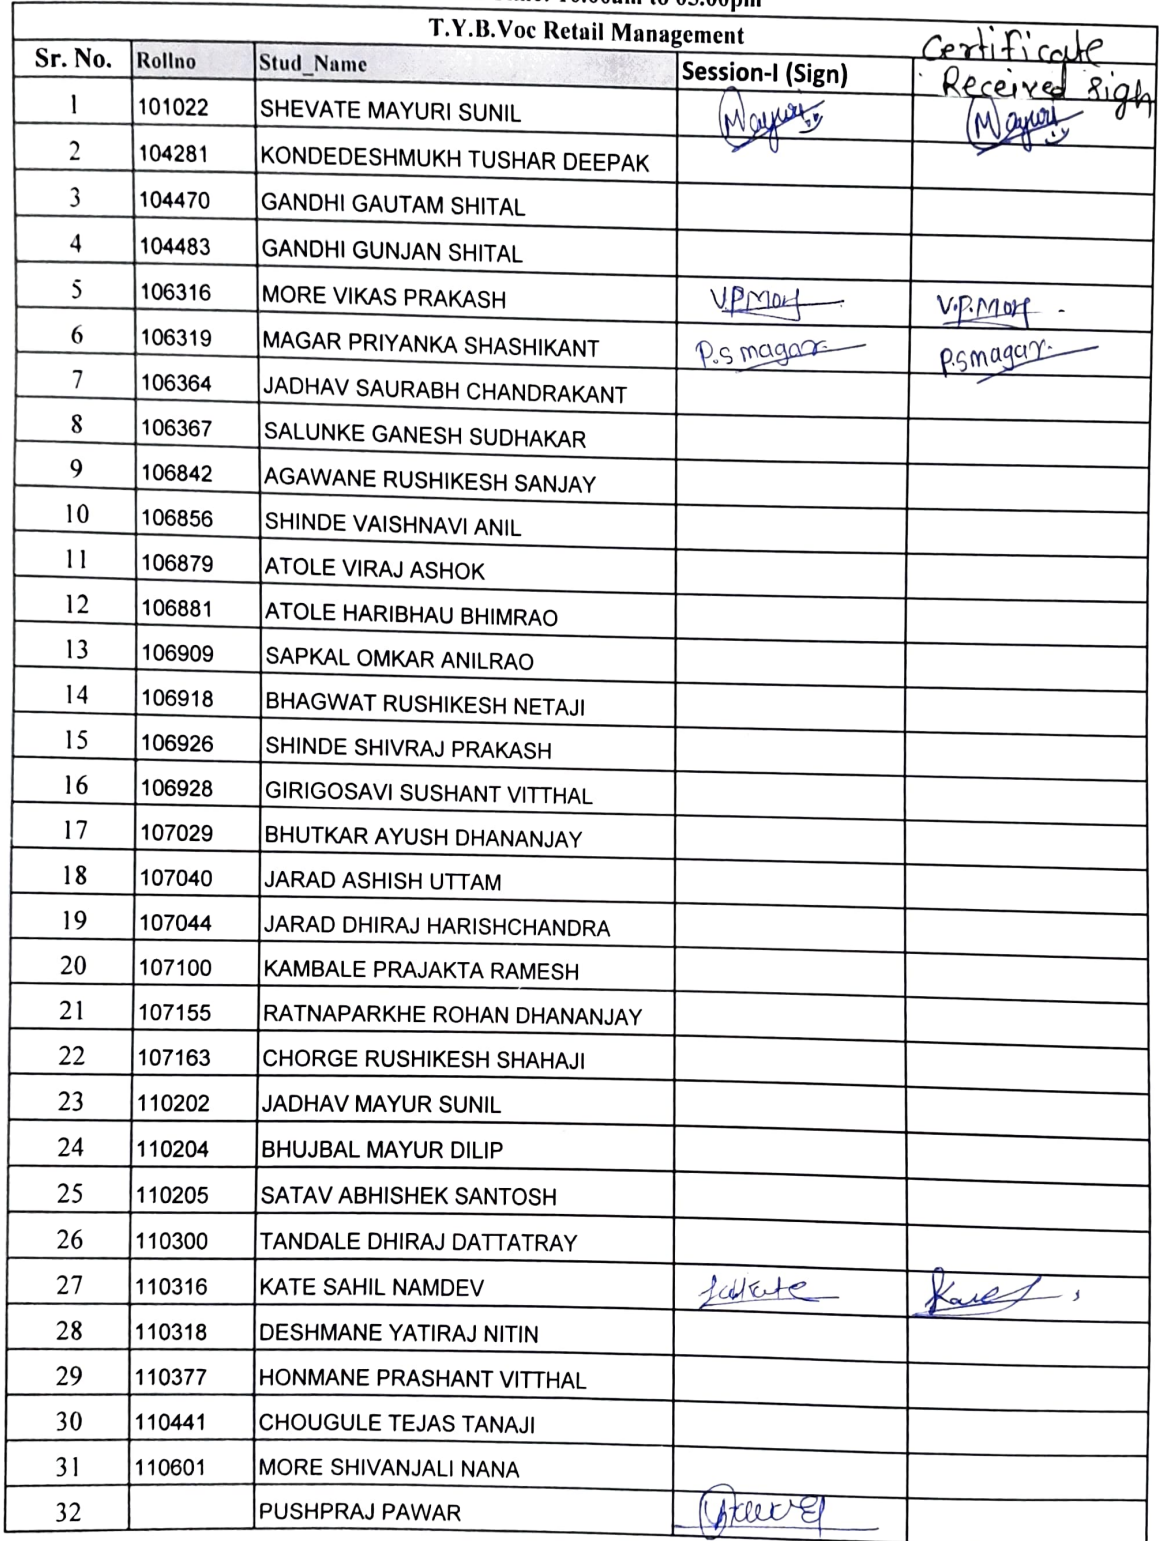 10.00am to 05.00pm
T.Y.B.Voc Retail Management
Sr. No. Rollno Stud_Name Session-I (Sign) Certificate Received Sign
1 101022 SHEVATE MAYURI SUNIL Mayuri Mayuri
2 104281 KONDEDESHMUKH TUSHAR DEEPAK
3 104470 GANDHI GAUTAM SHITAL
4 104483 GANDHI GUNJAN SHITAL
5 106316 MORE VIKAS PRAKASH V.P.More V.P.More
6 106319 MAGAR PRIYANKA SHASHIKANT P.s magar P.s magar
7 106364 JADHAV SAURABH CHANDRAKANT
8 106367 SALUNKE GANESH SUDHAKAR
9 106842 AGAWANE RUSHIKESH SANJAY
10 106856 SHINDE VAISHNAVI ANIL
11 106879 ATOLE VIRAJ ASHOK
12 106881 ATOLE HARIBHAU BHIMRAO
13 106909 SAPKAL OMKAR ANILRAO
14 106918 BHAGWAT RUSHIKESH NETAJI
15 106926 SHINDE SHIVRAJ PRAKASH
16 106928 GIRIGOSAVI SUSHANT VITTHAL
17 107029 BHUTKAR AYUSH DHANANJAY
18 107040 JARAD ASHISH UTTAM
19 107044 JARAD DHIRAJ HARISHCHANDRA
20 107100 KAMBALE PRAJAKTA RAMESH
21 107155 RATNAPARKHE ROHAN DHANANJAY
22 107163 CHORGE RUSHIKESH SHAHAJI
23 110202 JADHAV MAYUR SUNIL
24 110204 BHUJBAL MAYUR DILIP
25 110205 SATAV ABHISHEK SANTOSH
26 110300 TANDALE DHIRAJ DATTATRAY
27 110316 KATE SAHIL NAMDEV
28 110318 DESHMANE YATIRAJ NITIN
29 110377 HONMANE PRASHANT VITTHAL
30 110441 CHOUGULE TEJAS TANAJI
31 110601 MORE SHIVANJALI NANA
32 PUSHPRAJ PAWAR